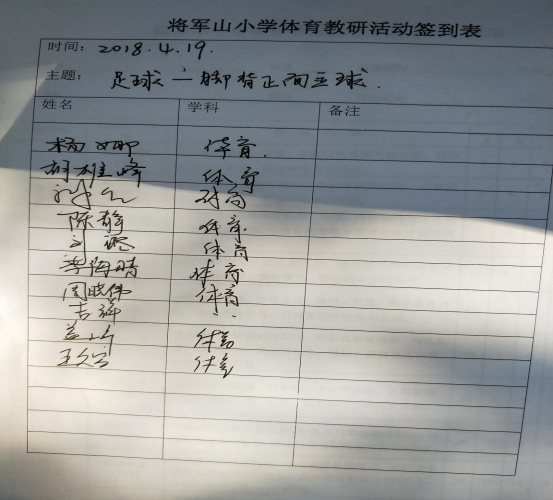 将军山小学体育教研活动签到表
时间：2018.4.19.
主题：足球—脚背正面运球.
姓名 学科 备注
杨娜 体育.
胡雄峰 体育
体育
陈静 体育.
刘 体育
李海晴 体育
周晓伟 体育
吉祥 〃
体育
王 体育